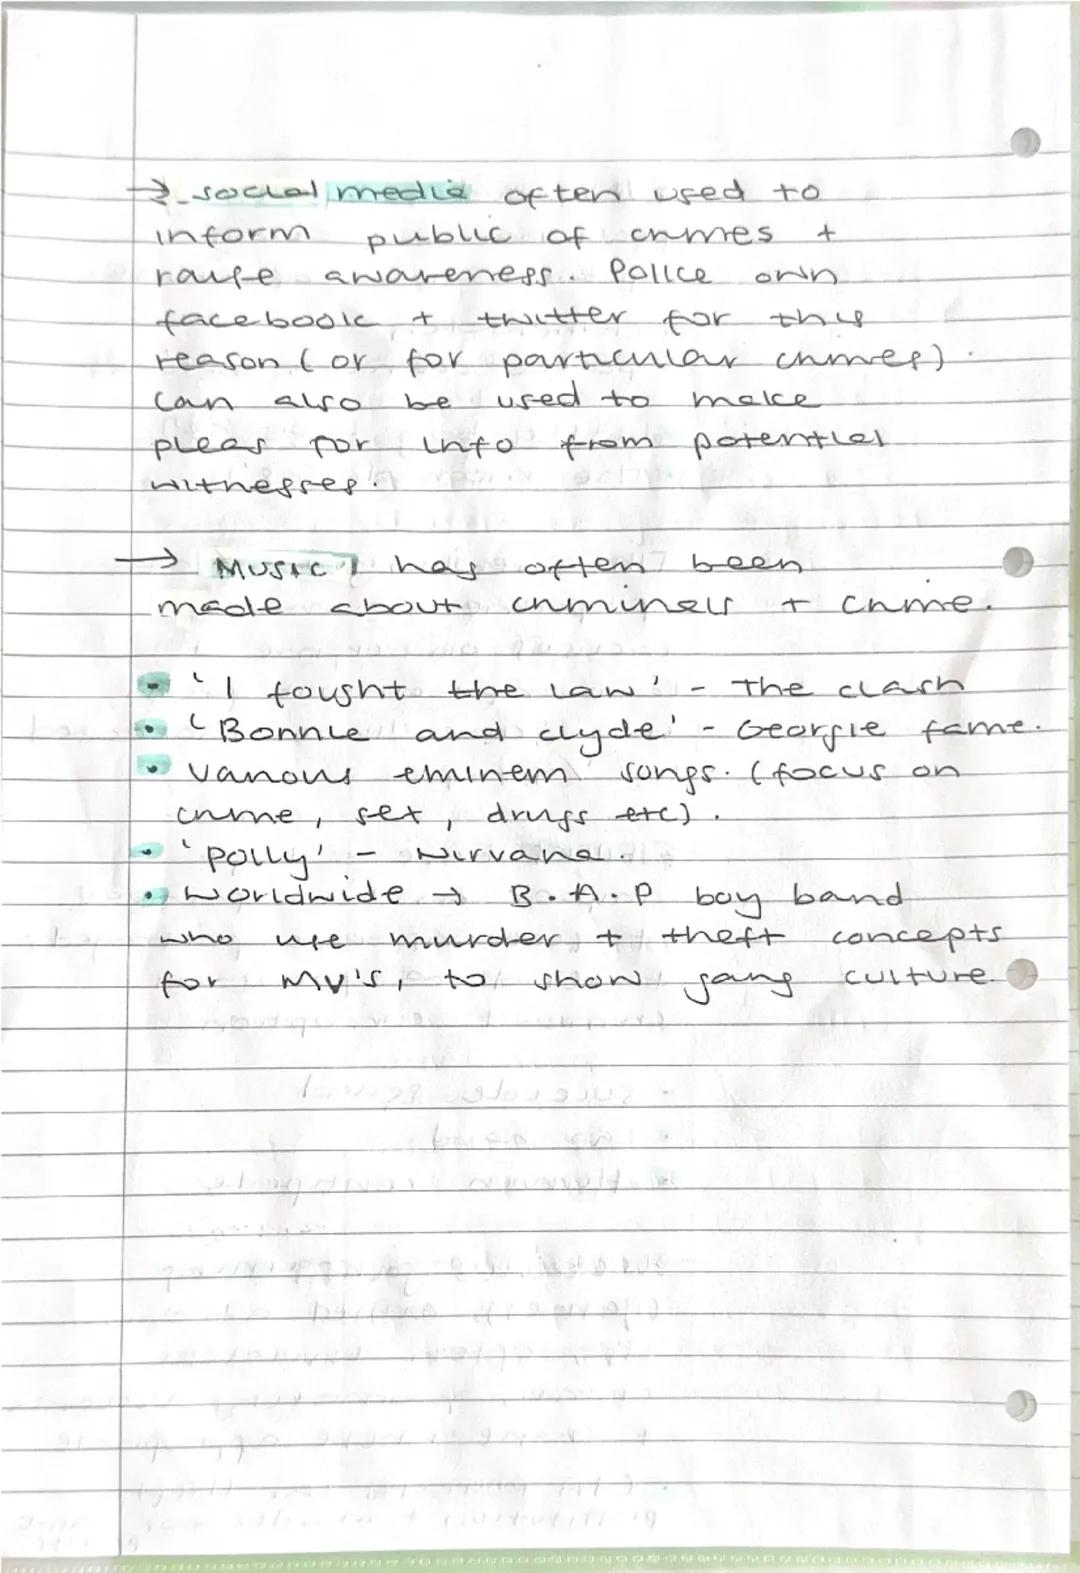 → social media often used to
inform public of crimes +
raise awareness. Police own
facebook + twitter for this
reason (or for particular crimes).
Can also be used to make
pleas for info from potential
witnesses.
→ Music has often been
made about criminals + crime.
• 'I fought the law' - The clash
• 'Bonnie and clyde' - Georgie fame.
• Various eminem songs. (focus on
crime, sex, drugs etc).
• 'Polly' - Nirvana.
• Worldwide → B.A.P boy band
who use murder + theft concepts
for MV's, to show gang culture.